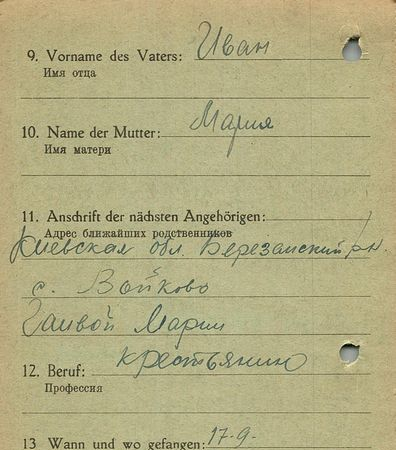 9. Vorname des Vaters: Иван
Имя отца
10. Name der Mutter: Мария
Имя матери
11. Anschrift der nächsten Angehörigen:
Адрес ближайших родственников
Киевская обл. Березанский рн.
с. Войково
Гаивой Марии
12. Beruf: крестьянин
Профессия
13 Wann und wo gefangen: 17-9-